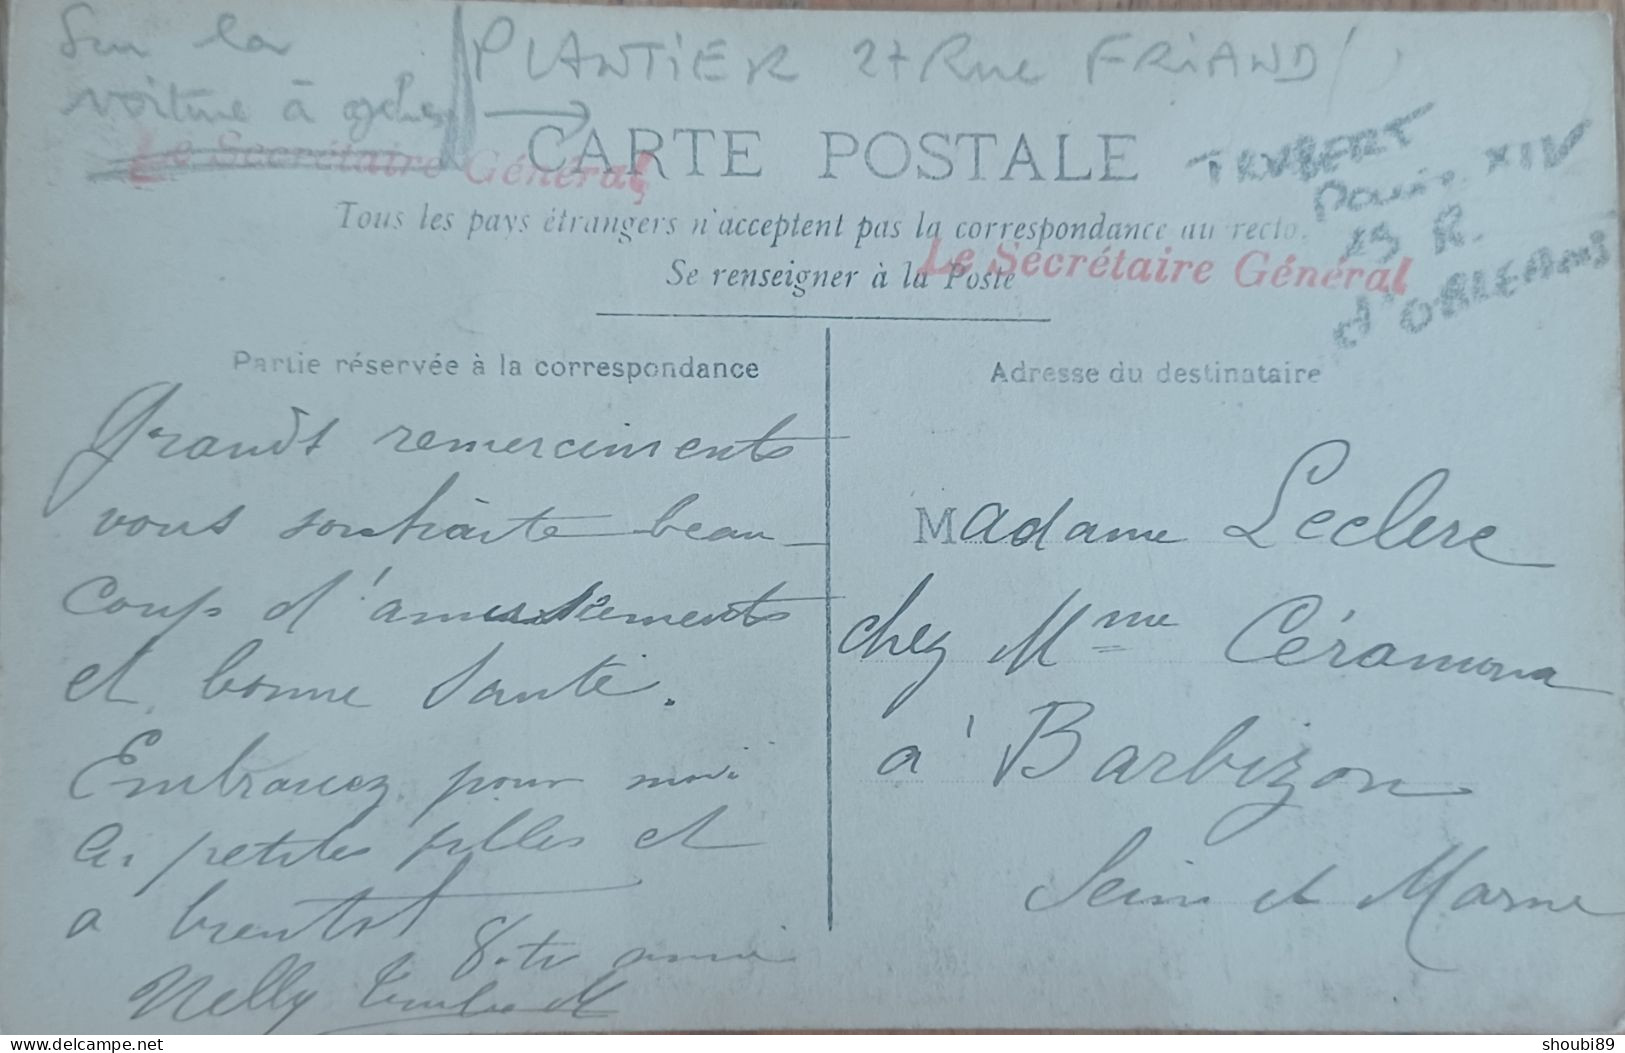 Sur la
voiture à
PLANTIER 27 Rue FRIAND
Le Secrétaire Général
CARTE POSTALE
TAUBERT
Paris XIV
25 R.
d'ORLEANS
Tous les pays étrangers n'acceptent pas la correspondance au recto.
Se renseigner à la Poste
Le Secrétaire Général
Partie réservée à la correspondance
Grands remerciments
vous souhaite beau-
coup d'amusements
et bonne Santé.
Embrassez pour moi
les petites filles et
a bientot
Votre amie
Nelly
Adresse du destinataire
Madame Leclerc
chez Mme Céramona
à Barbizon
Seine et Marne
delcampe.net
shoubi89